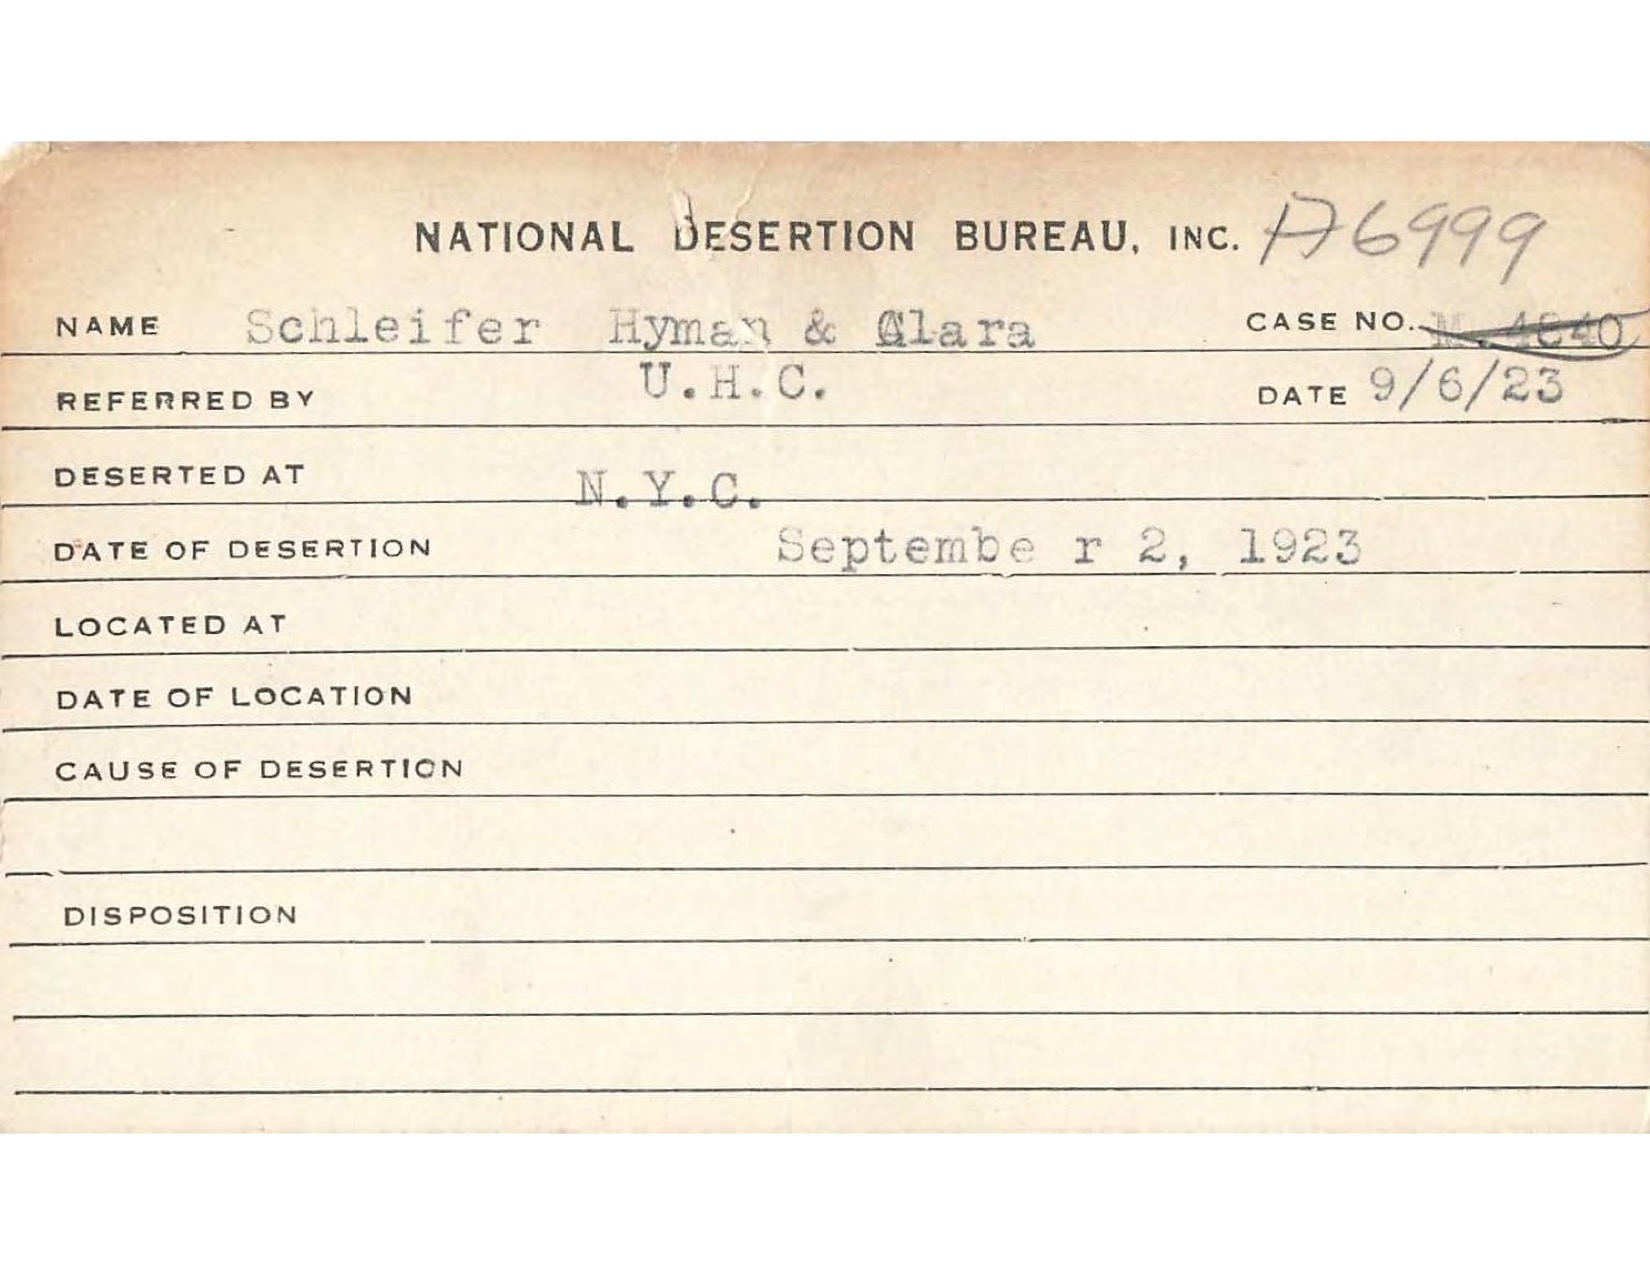 NATIONAL DESERTION BUREAU, INC. A6999
NAME Schleifer Hyman & Clara CASE NO. M. 4840
REFERRED BY U.H.C. DATE 9/6/23
DESERTED AT N.Y.C.
DATE OF DESERTION Septembe r 2, 1923
LOCATED AT
DATE OF LOCATION
CAUSE OF DESERTION
DISPOSITION